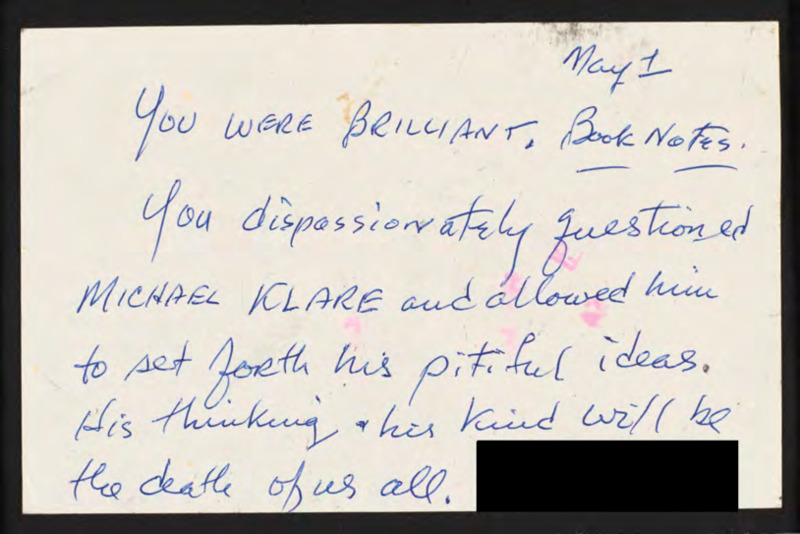 May 1
YOU WERE BRILLIANT. Book Notes.
You dispassionately questioned
MICHAEL KLARE and allowed him
to set forth his pitiful ideas.
His thinking & his kind will be
the death of us all.